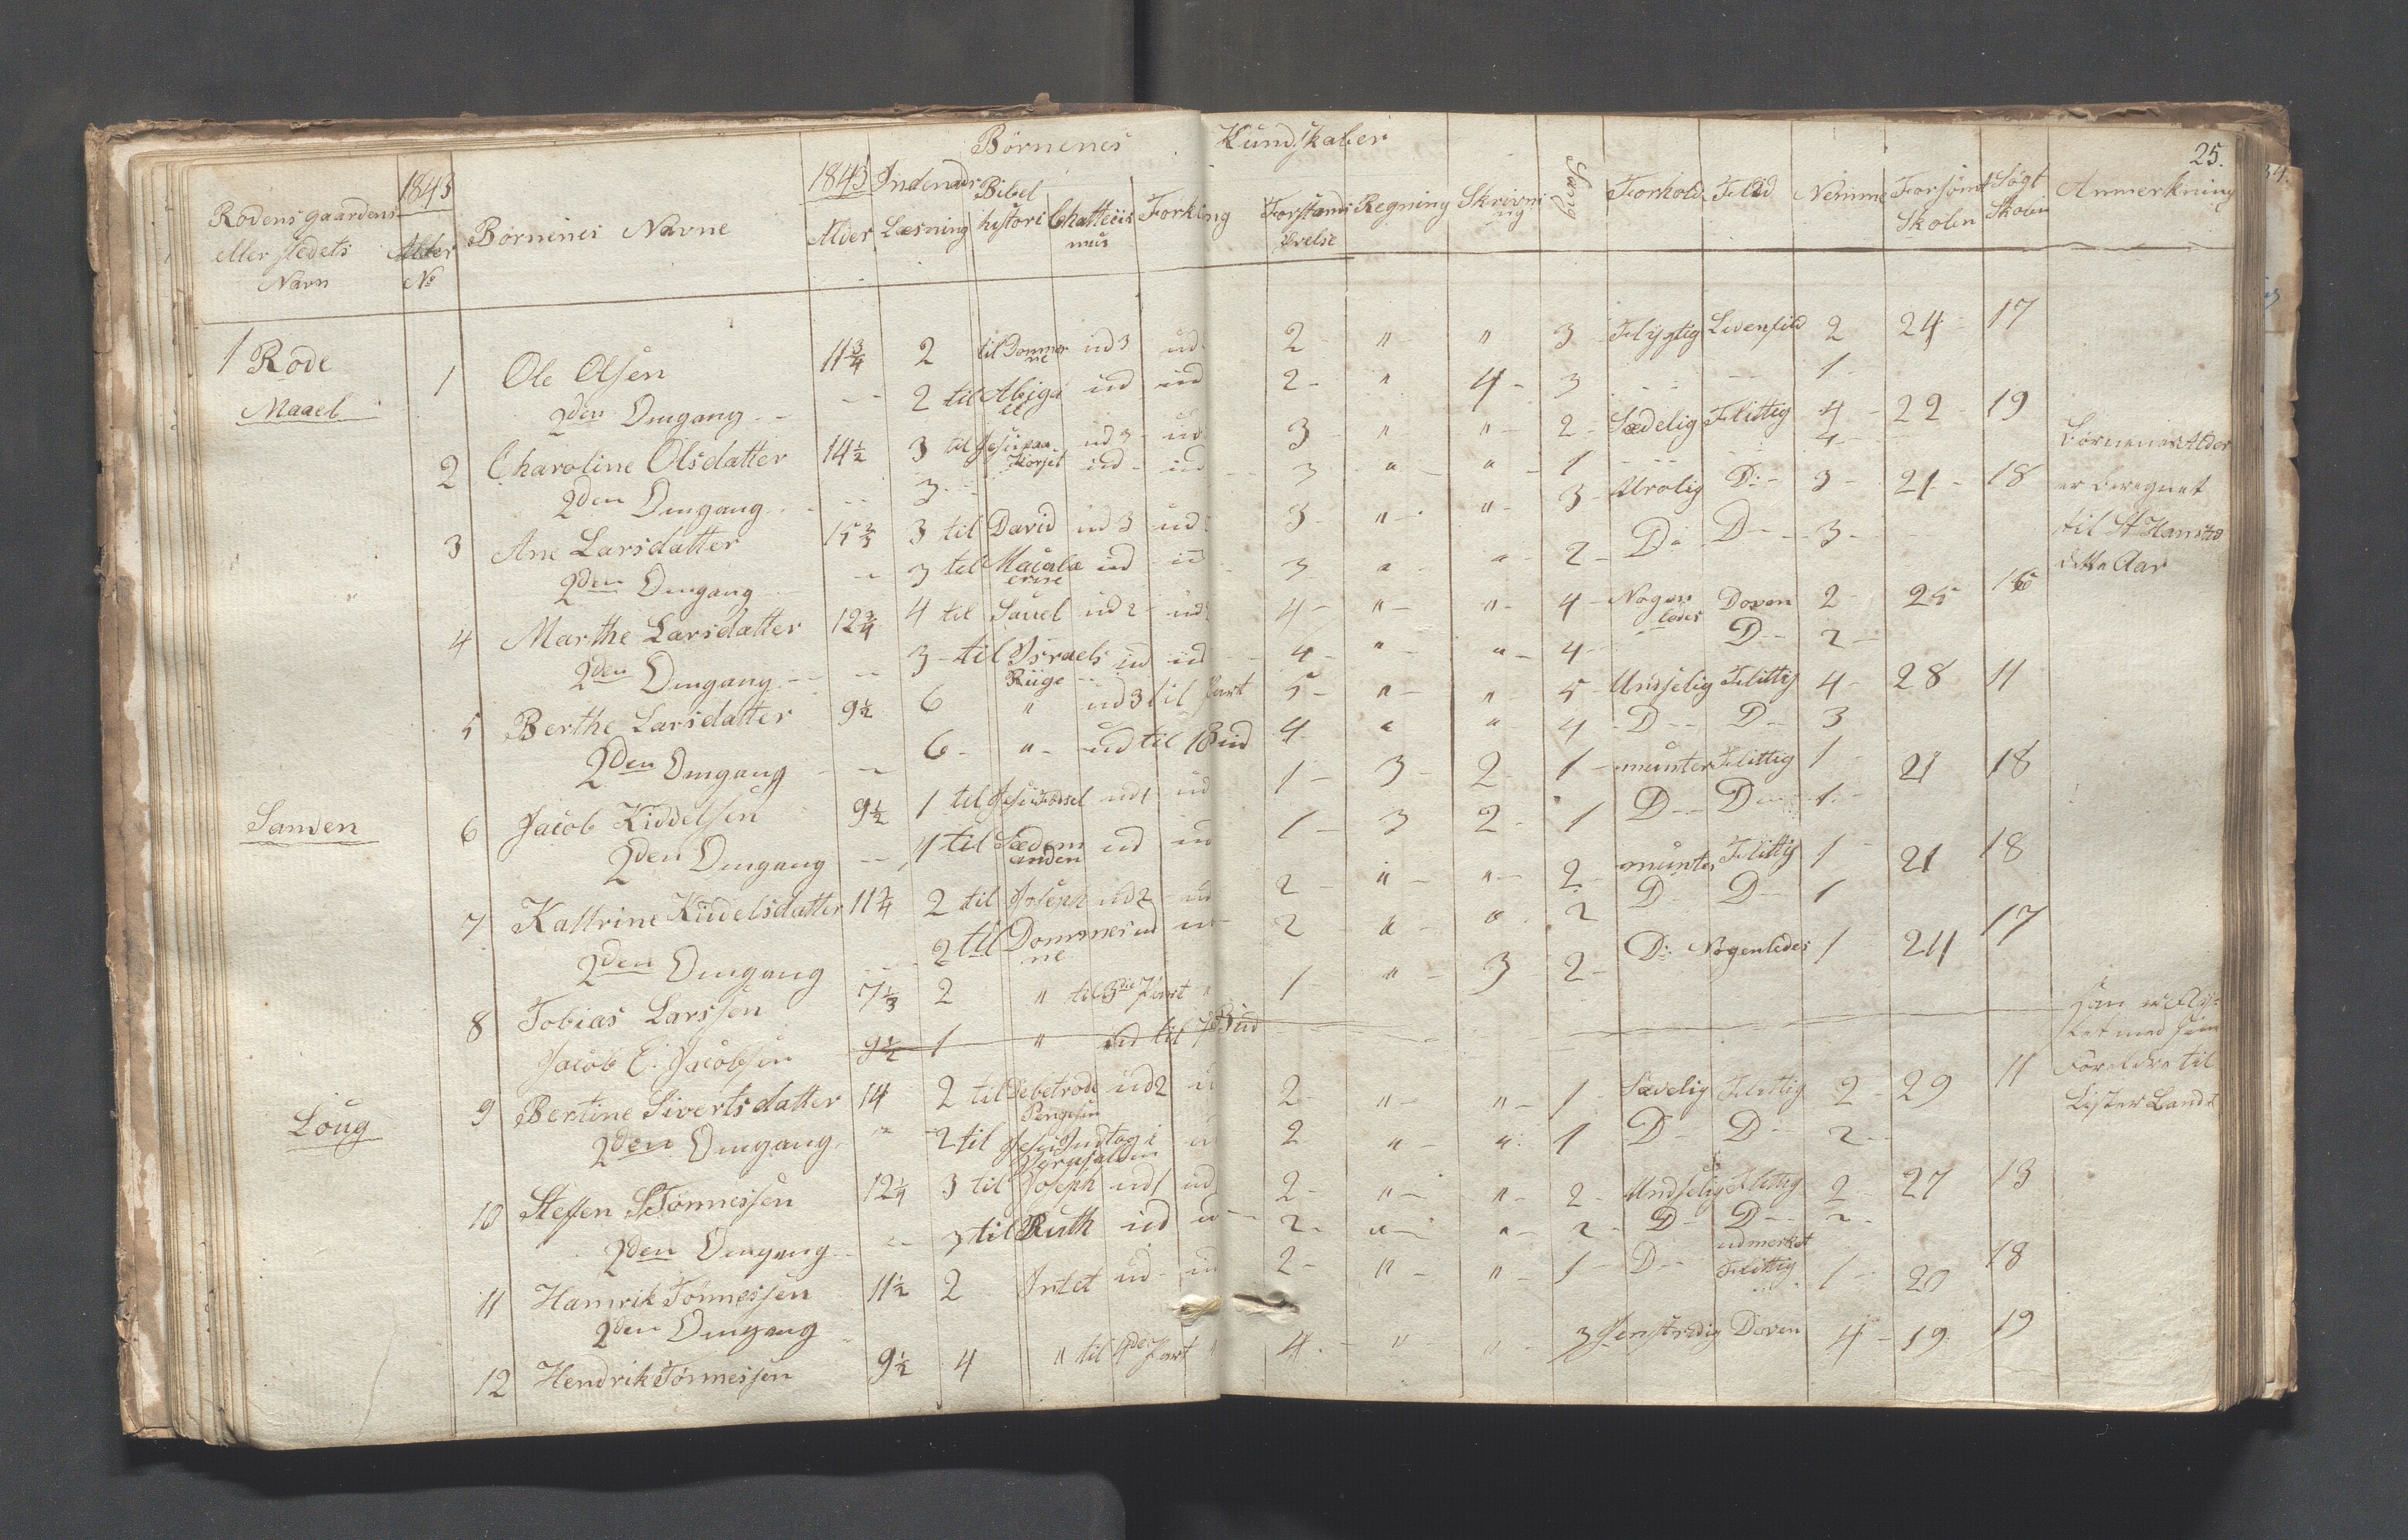 Börnenes Kundskaber
25.
Rodens gaardens eller stedets Navn | 1843 No | Börnenes Navne | 1843 Alder | Indenads Læsning | Bibel histori | Chatteciis mus | Forkling | Forstands övelse | Regning | Skrivning | Sang | Forhold | Flid | Nemme | Forsömt Skolen | Sögt Skolen | Anmerkning
1 Rode
Maael | 1 | Ole Olsen | 11 3/4 | 2 | til Dommerne | ud 3 | ud | 2 | " | " | 3 | Flygtig | | 2 | 24 | 17
2den Omgang | - - | 2 | til Abiga | ud | ud | 2 - | " | 4 - | 3 | - - | - - | 1 -
2 | Charoline Olsdatter | 14 1/2 | 3 | til Jesu paa Korset | ud 3 | ud | 3 - | " | " - | 2 - | Sædelig | Flittig | 4 - | 22 - | 19
2den Omgang | - - | 3 - - | ud - | ud | 3 | " - | " - | 1 | - - | | 4 - | | | Börnenes Alder
3 | Ane Larsdatter | 15 | 3 | til David | ud 3 | ud | 3 - | " - | " - | 3 - | Urolig | D: - | 3 - | 21 - | 18 | er beregnet
2den Omgang | - - | 3 | til | ud | ud | 3 | " - | " - | 2 - | D: | D - - | 3 - | | | til St Hans
dette Aar
4 | Marthe Larsdatter | 12 3/4 | 4 | til Sauel | ud 2 | ud | 4 - | " - | " - | 4 - | Nogen ledes | Doven | 2 - | 25
2den Omgang - - | - - | 3 - | til Israels Riige | ud | ud | 4 - | " - | " - | 4 - | | D - - | 2 -
5 | Berthe Larsdatter | 9 1/2 | 6 | " | ud 3 | til Part | 5 - | " - | " | 5 - | Undselig | Flittig | 4 - | 28 | 11
2den Omgang | - - | 6 - | " - | ud | til 18 Bud | 4 | " | " | 4 - | D - - | D - - | 3
Sanden | 6 | Jacob Kiddelsen | 9 1/2 | 1 | til Jesu Födsel | ud 1 | ud | 1 - | 3 - | 2 - | 1 - | munter | Flittig | 1 | 21 | 18
2den Omgang | - - | 1 | til Sædemanden | ud | ud | 1 - | 3 | 2 - | 1 | D - - | D - - | 1 -
7 | Kattrine Kiddelsdatter | 11 3/4 | 2 | til Joseph | ud 2 | ud | 2 - | " - | " - | 2 - | munter | Flittig | 1 | 21 | 18
2den Omgang | - - | 2 | til Dommerne | ud | ud | 2 | " - | " - | 2 | D - | D - | 1
8 | Tobias Larssen | 7 1/3 | 2 | " | til 3die Part | " | 1 | " - | 3 | 2 - | D: | Nogenledes | 1 | 21 | 17
Jacob E. Jacobsen | 9 1/2 | 1 | " | ud | til 7 Bud | | | | | | | | | | Han er Flyttet med sine Foreldre til Lister Land
Loug | 9 | Bertine Sivertsdatter | 14 | 2 | til | ud 2 | ud | 2 - | " - | " - | 1 - | Sædelig | Flittig | 2 - | 29 | 11
2den Omgang | - - | 2 | til Jesu Indtog i Jerusalem | | ud | 2 | " - | " | 1 | D - | D - | 2 - -
10 | Steffen STönnessen | 12 1/4 | 3 | til Joseph | ud 1 | ud | 2 - | " - | " - | 2 - | Undselig | Flittig | 2 | 27 | 13
2den Omgang | - - | 3 | til Ruth | ud | ud | 2 - | " - | " - | 2 - | D - | D - - | 2 -
11 | Hamrik Tönnessen | 11 1/2 | 2 | Intet | ud - | ud | 2 - | " - | " - | 1 - | D - - | udmerket Flittig | 1 - | 20 | 18
2den Omgang
12 | Hendrik Tönnessen | 9 1/2 | 4 | " | til 4de Part | " | 4 - | " | " | 3 | Jenstridig | Doven | 4 - | 19 | 19